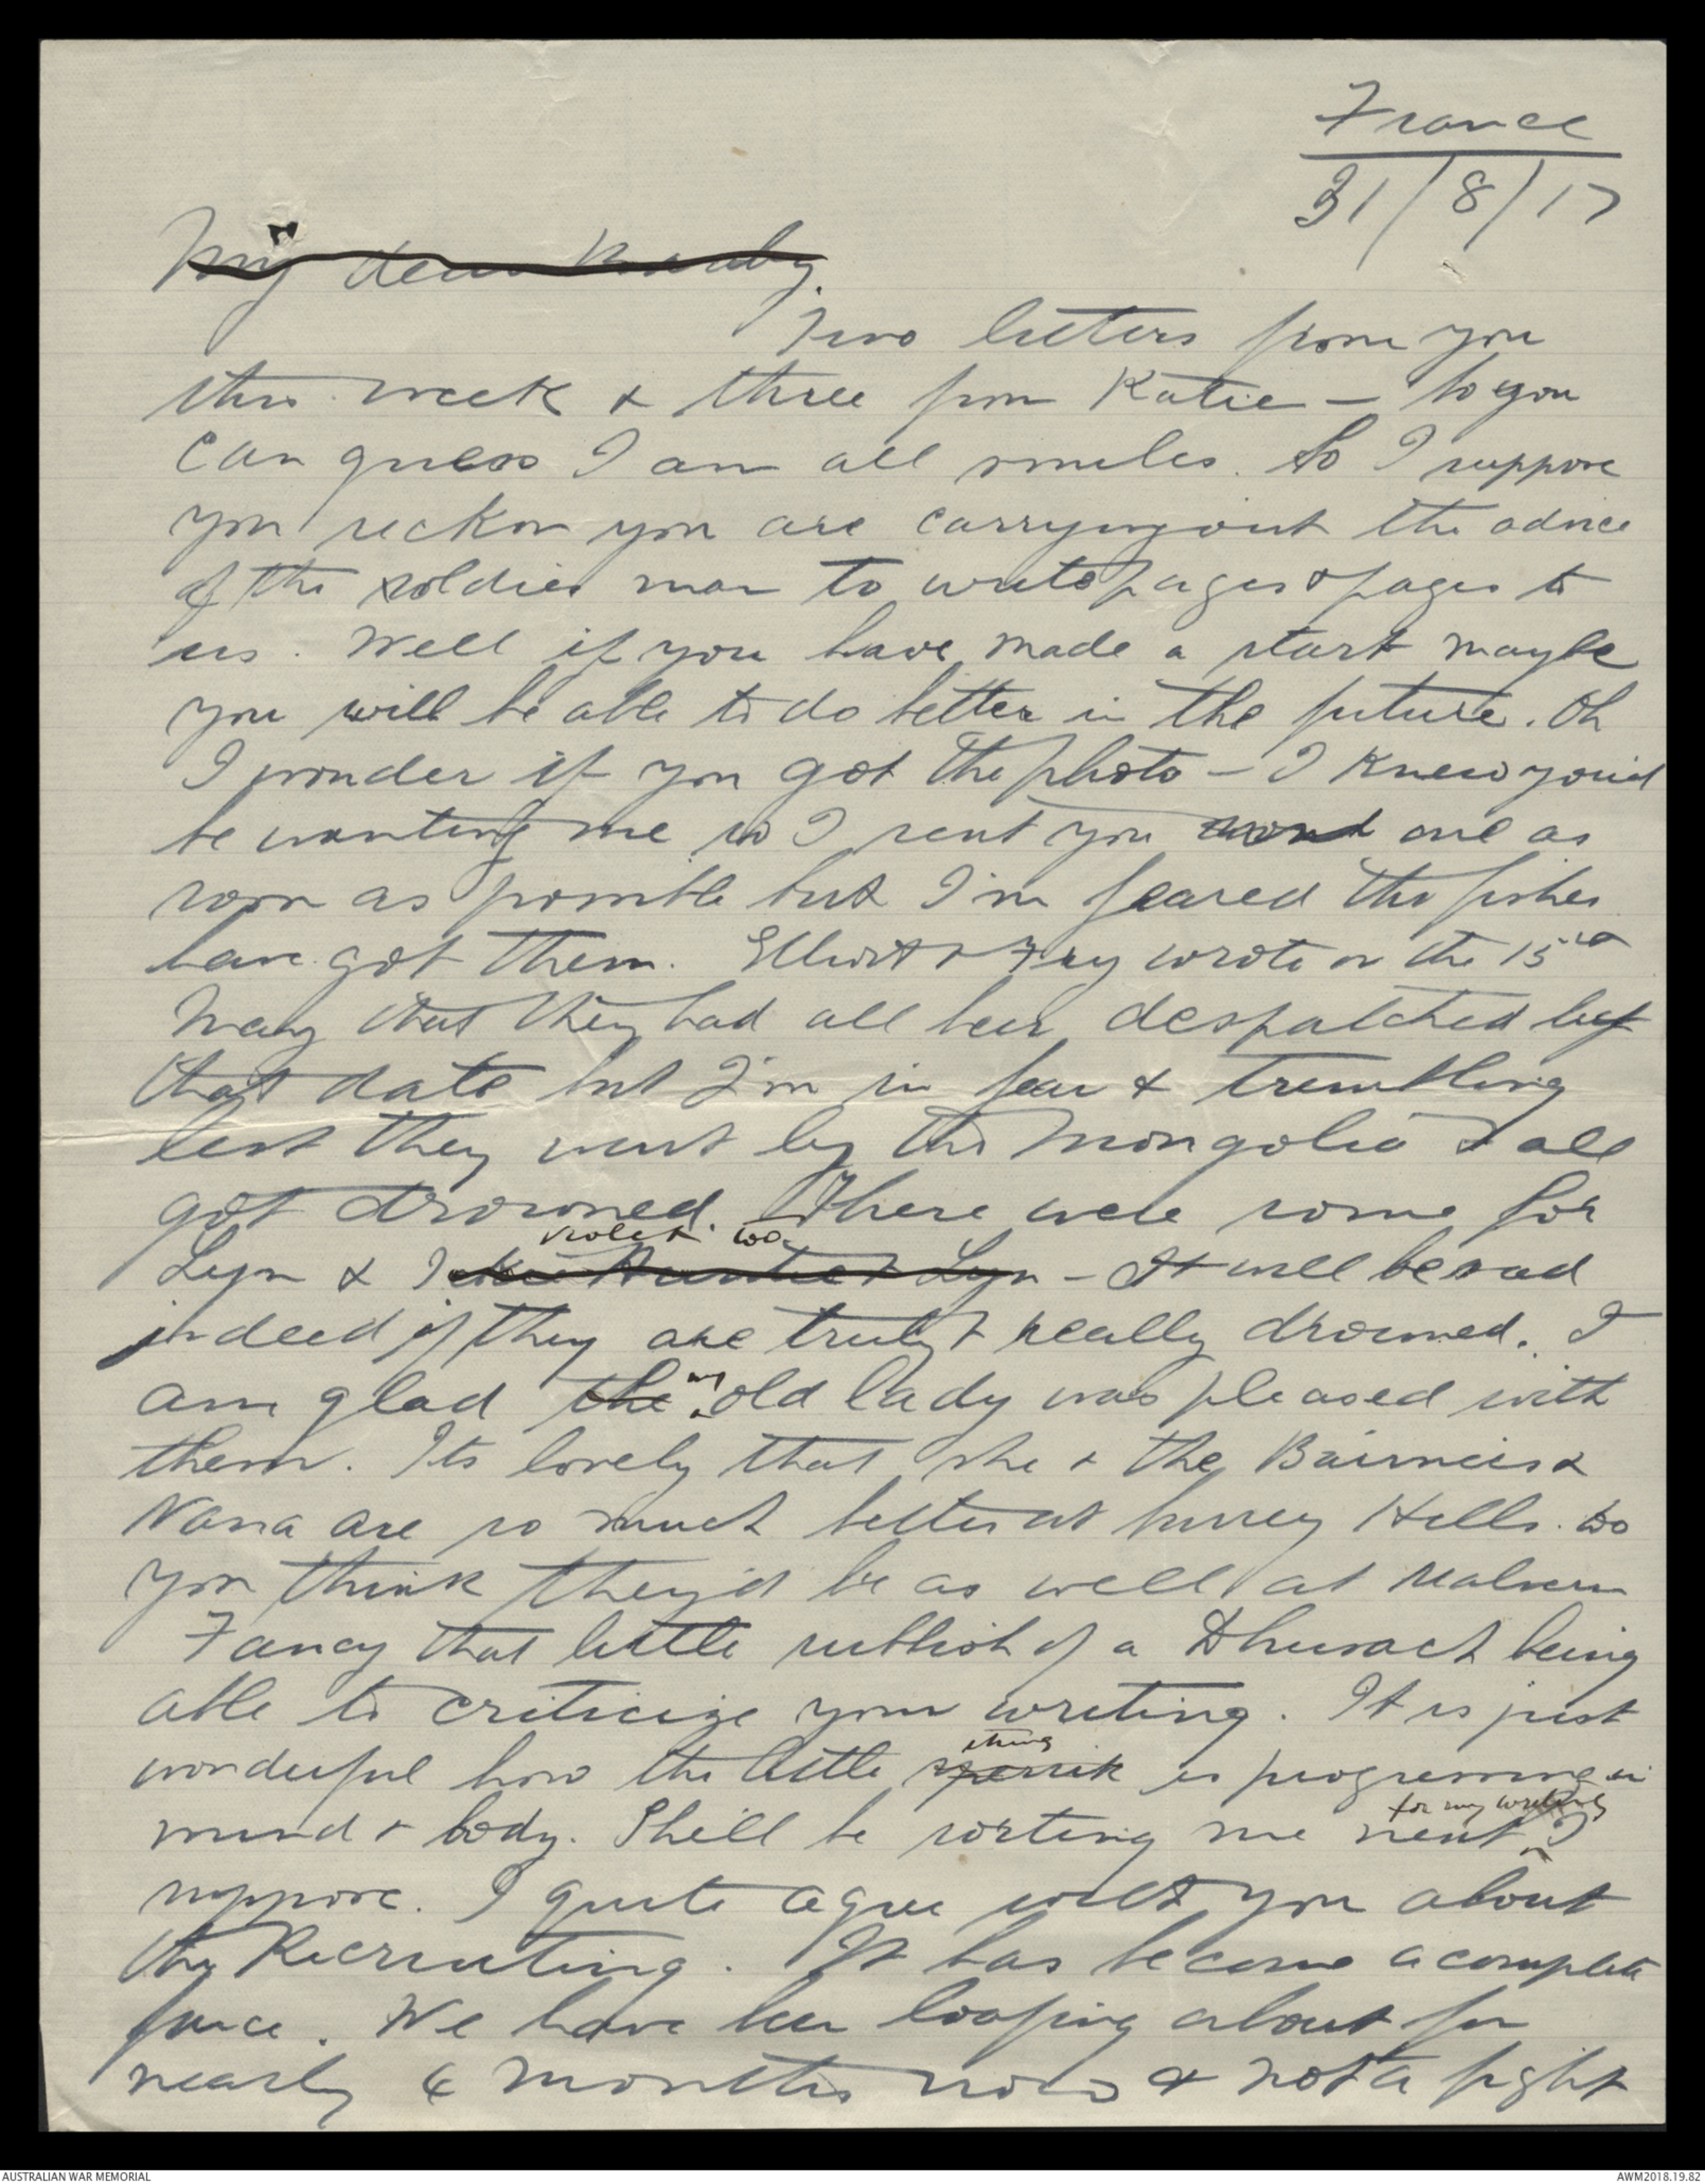 France
31/8/17
My dear
Two letters from you
this week & three from Katie — so you
can guess I am all smiles. So I suppose
you reckon you are carrying out the advice
of the soldier man to write pages & pages to
us. Well if you have made a start maybe
you will be able to do better in the future. Oh
I wonder if you got the photo — I knew you'd
be wanting me so I sent you one as
soon as possible but I'm feared the fishes
have got them. Elliott & Fry wrote on the 15th
May that they had all been despatched bef
that date but I'm in fear & trembling
lest they went by the Mongolia & all
got drowned. There were some for
violet too
Lyn & Auntie & Lyn — It will be sad
indeed if they are truly & really drowned. I
my
am glad the old lady was pleased with
them. Its lovely that she & the Bairnies &
Nana are so much better at Surrey Hills. Do
you think they'd be as well at Malvern
Fancy that little rubbish of a Dhurach being
able to criticize your writing. It is just
thing
wonderful how the little is progressing in
for my writing
mind & body. Shell be rosting me next I
suppose. I quite agree with you about
the Recruiting. It has become a complete
farce. We have been loafing about for
nearly 4 months now & not a fight
AUSTRALIAN WAR MEMORIAL
AWM2018.19.82